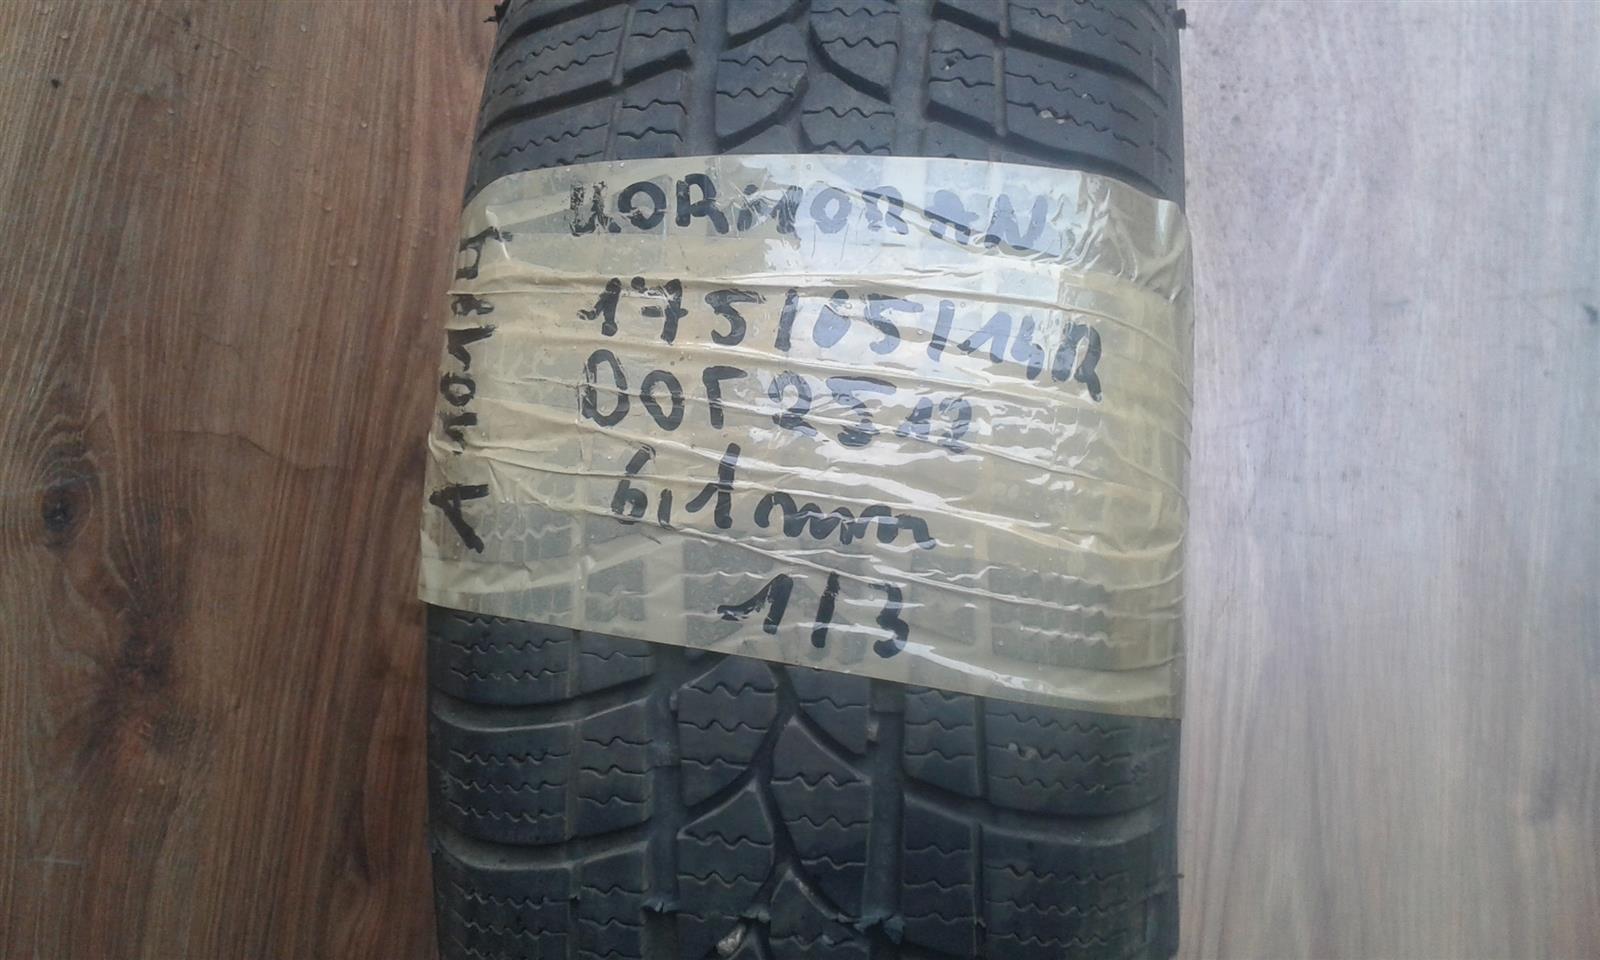 KORMORAN
175/65/14R
DOT 2512
6,1mm
1/3